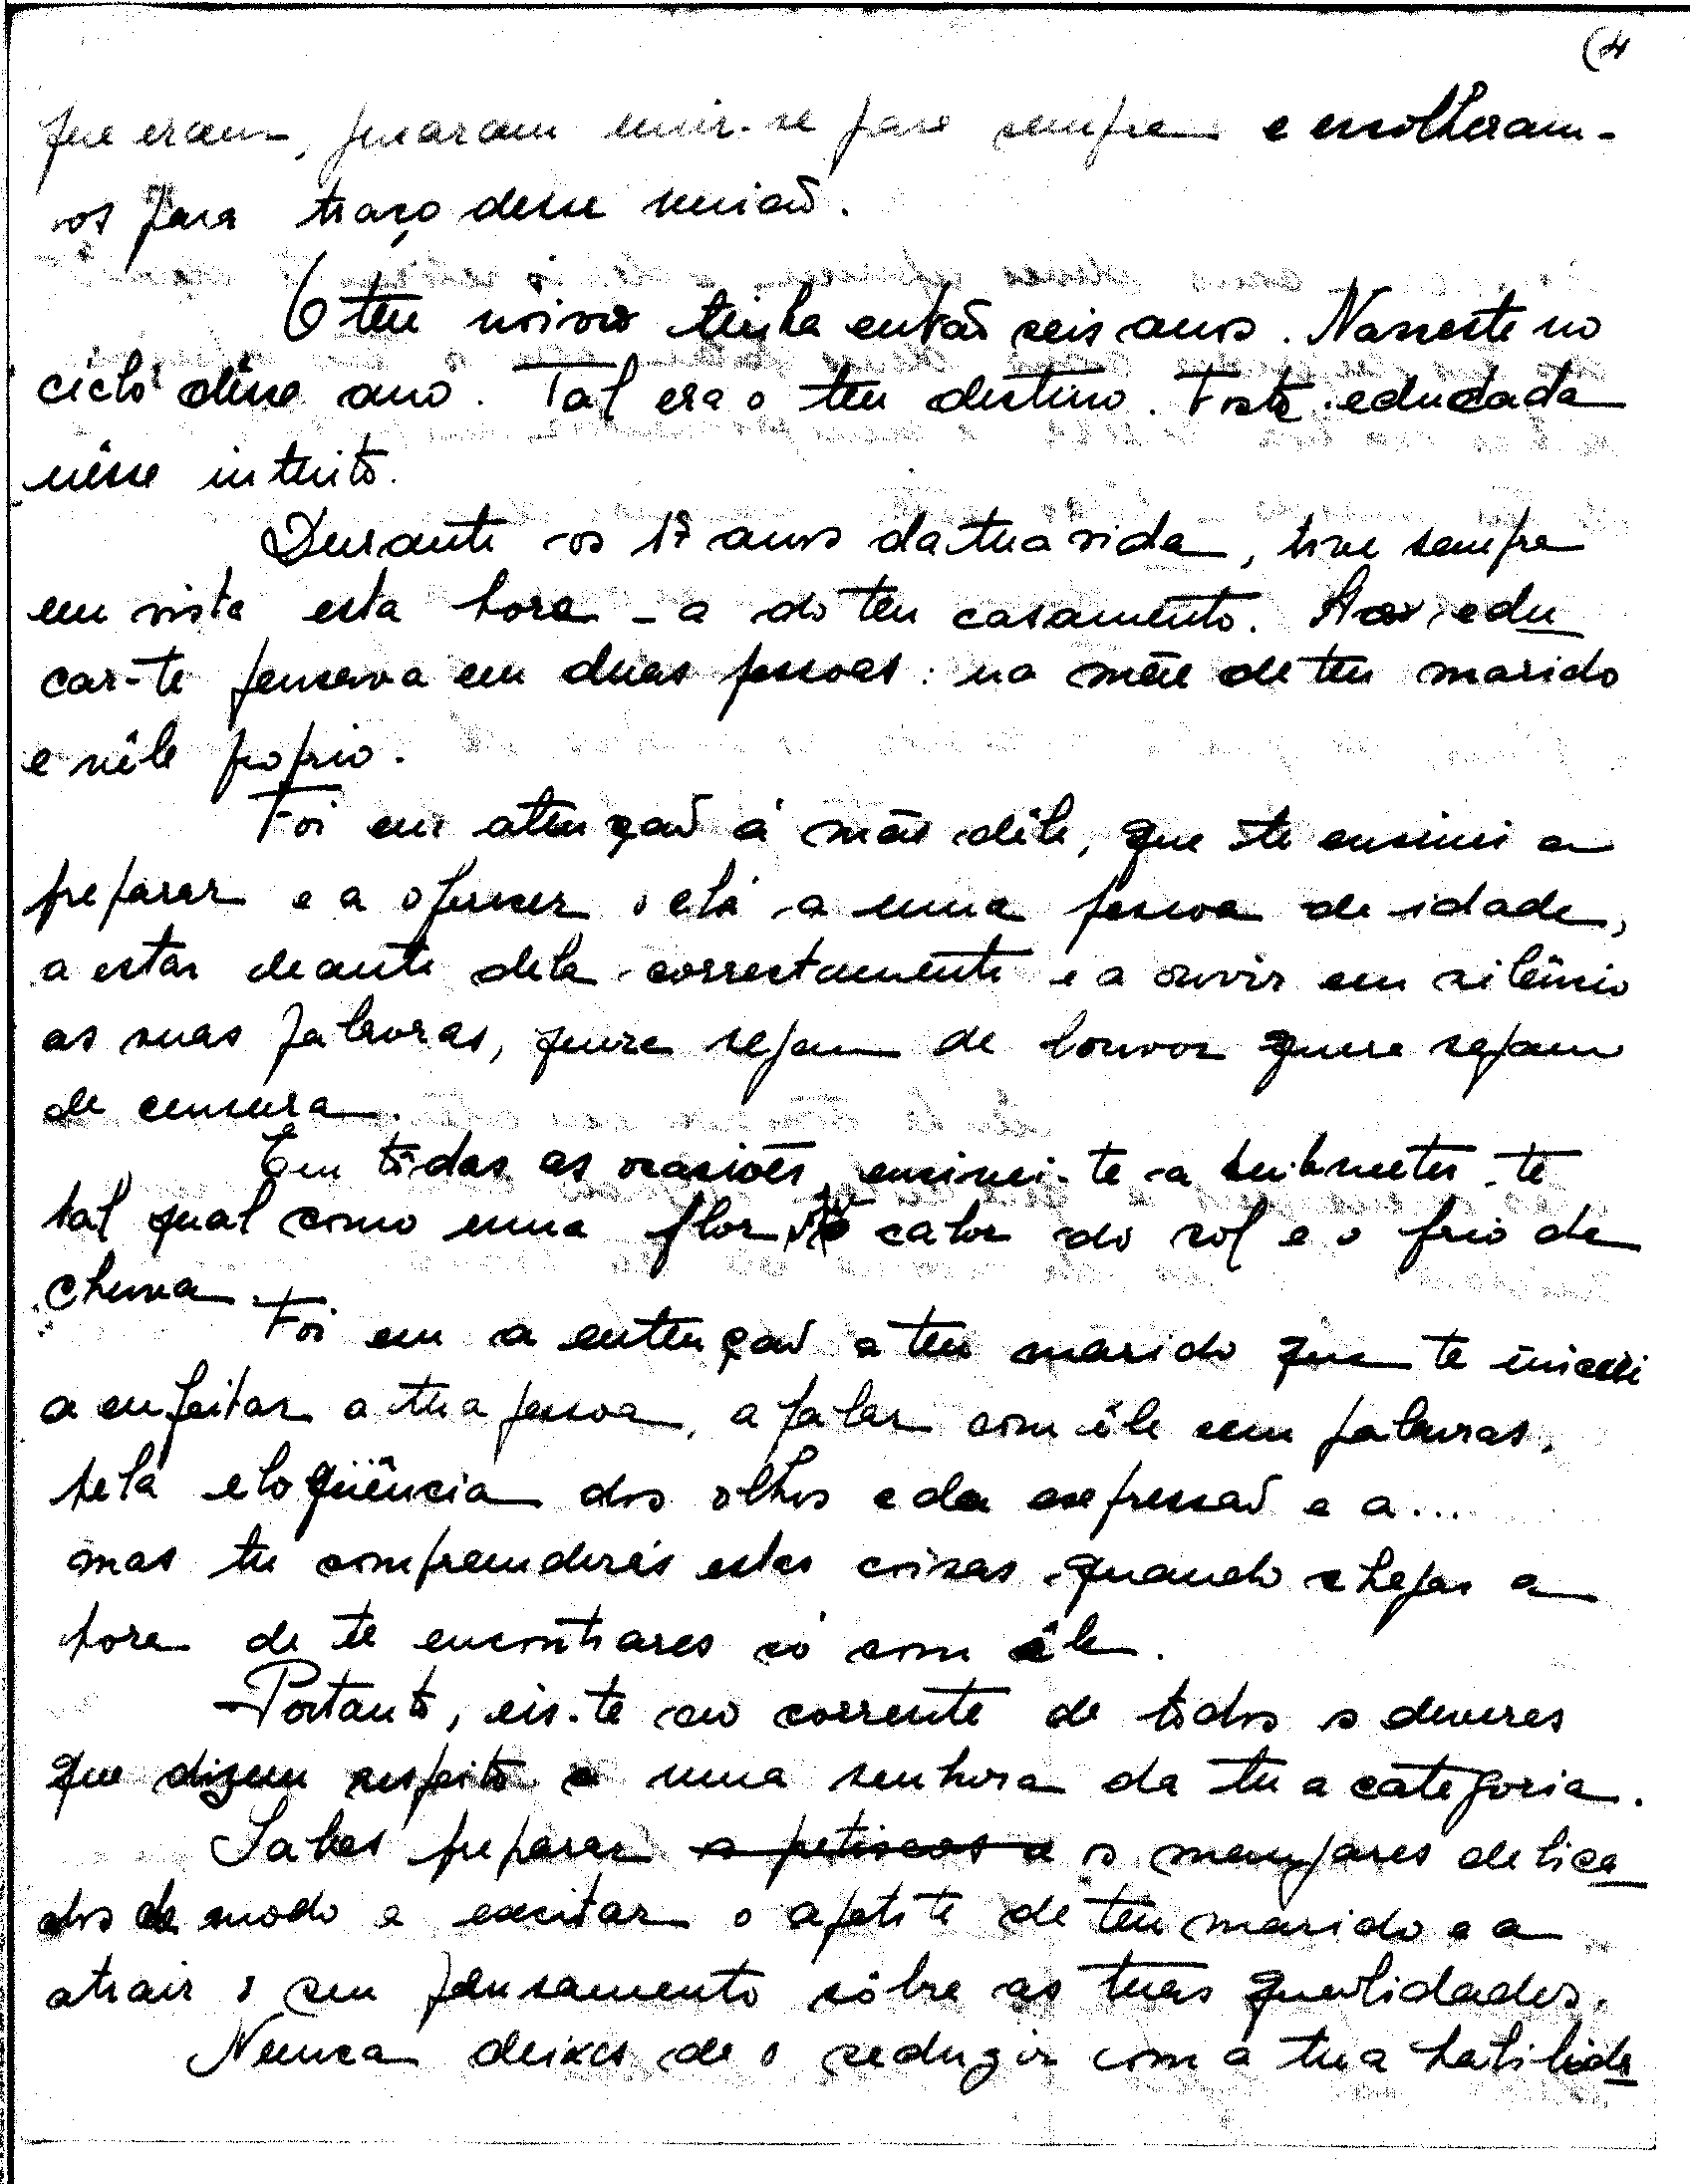 (4
que eram, juraram unir-se para sempre e escolheram-
vos para traço dessa união.
O teu noivo tinha então seis anos. Nasceste no
ciclo dêsse ano. Tal era o teu destino. Foste educada
nêsse intuito.
Durante os 17 anos da tua vida, tive sempre
em vista esta hora - a do teu casamento. Ao edu
car-te pensava em duas pessoas: na mãe de teu marido
e nêle proprio.
Foi em atenção á mãe dêle, que te ensinei a
preparar e a oferecer o chá a uma pessoa de idade,
a estar deante dela correctamente e a ouvir em silêncio
as suas palavras, quere sejam de louvor quere sejam
de censura.
Em tôdas as ocasiões, ensinei-te a submeter-te
tal qual como uma flor ao calor do sol e o frio da
chuva.
Foi em a entenção a teu marido que te iniciei
a enfeitar a tua pessoa, a falar com êle sem palavras,
pela eloqüência dos olhos e da expressão e a...
mas tu compreenderás estas coisas quando chegar a
hora de te encontrares só com êle.
Portanto, eis-te ao corrente de todos os deveres
que dizem respeito a uma senhora da tua categoria.
Sabes preparar os petiscos e os manjares delica
dos de modo a excitar o apetite de teu marido e a
atrair o seu pensamento sôbre as tuas qualidades.
Nunca deixes de o seduzir com a tua habilida